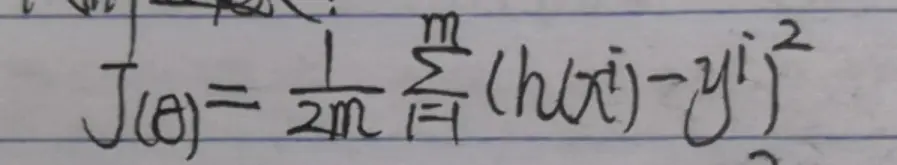 J(θ) = \frac{1}{2m} \sum_{i=1}^{m} (h(x^i) - y^i)^2